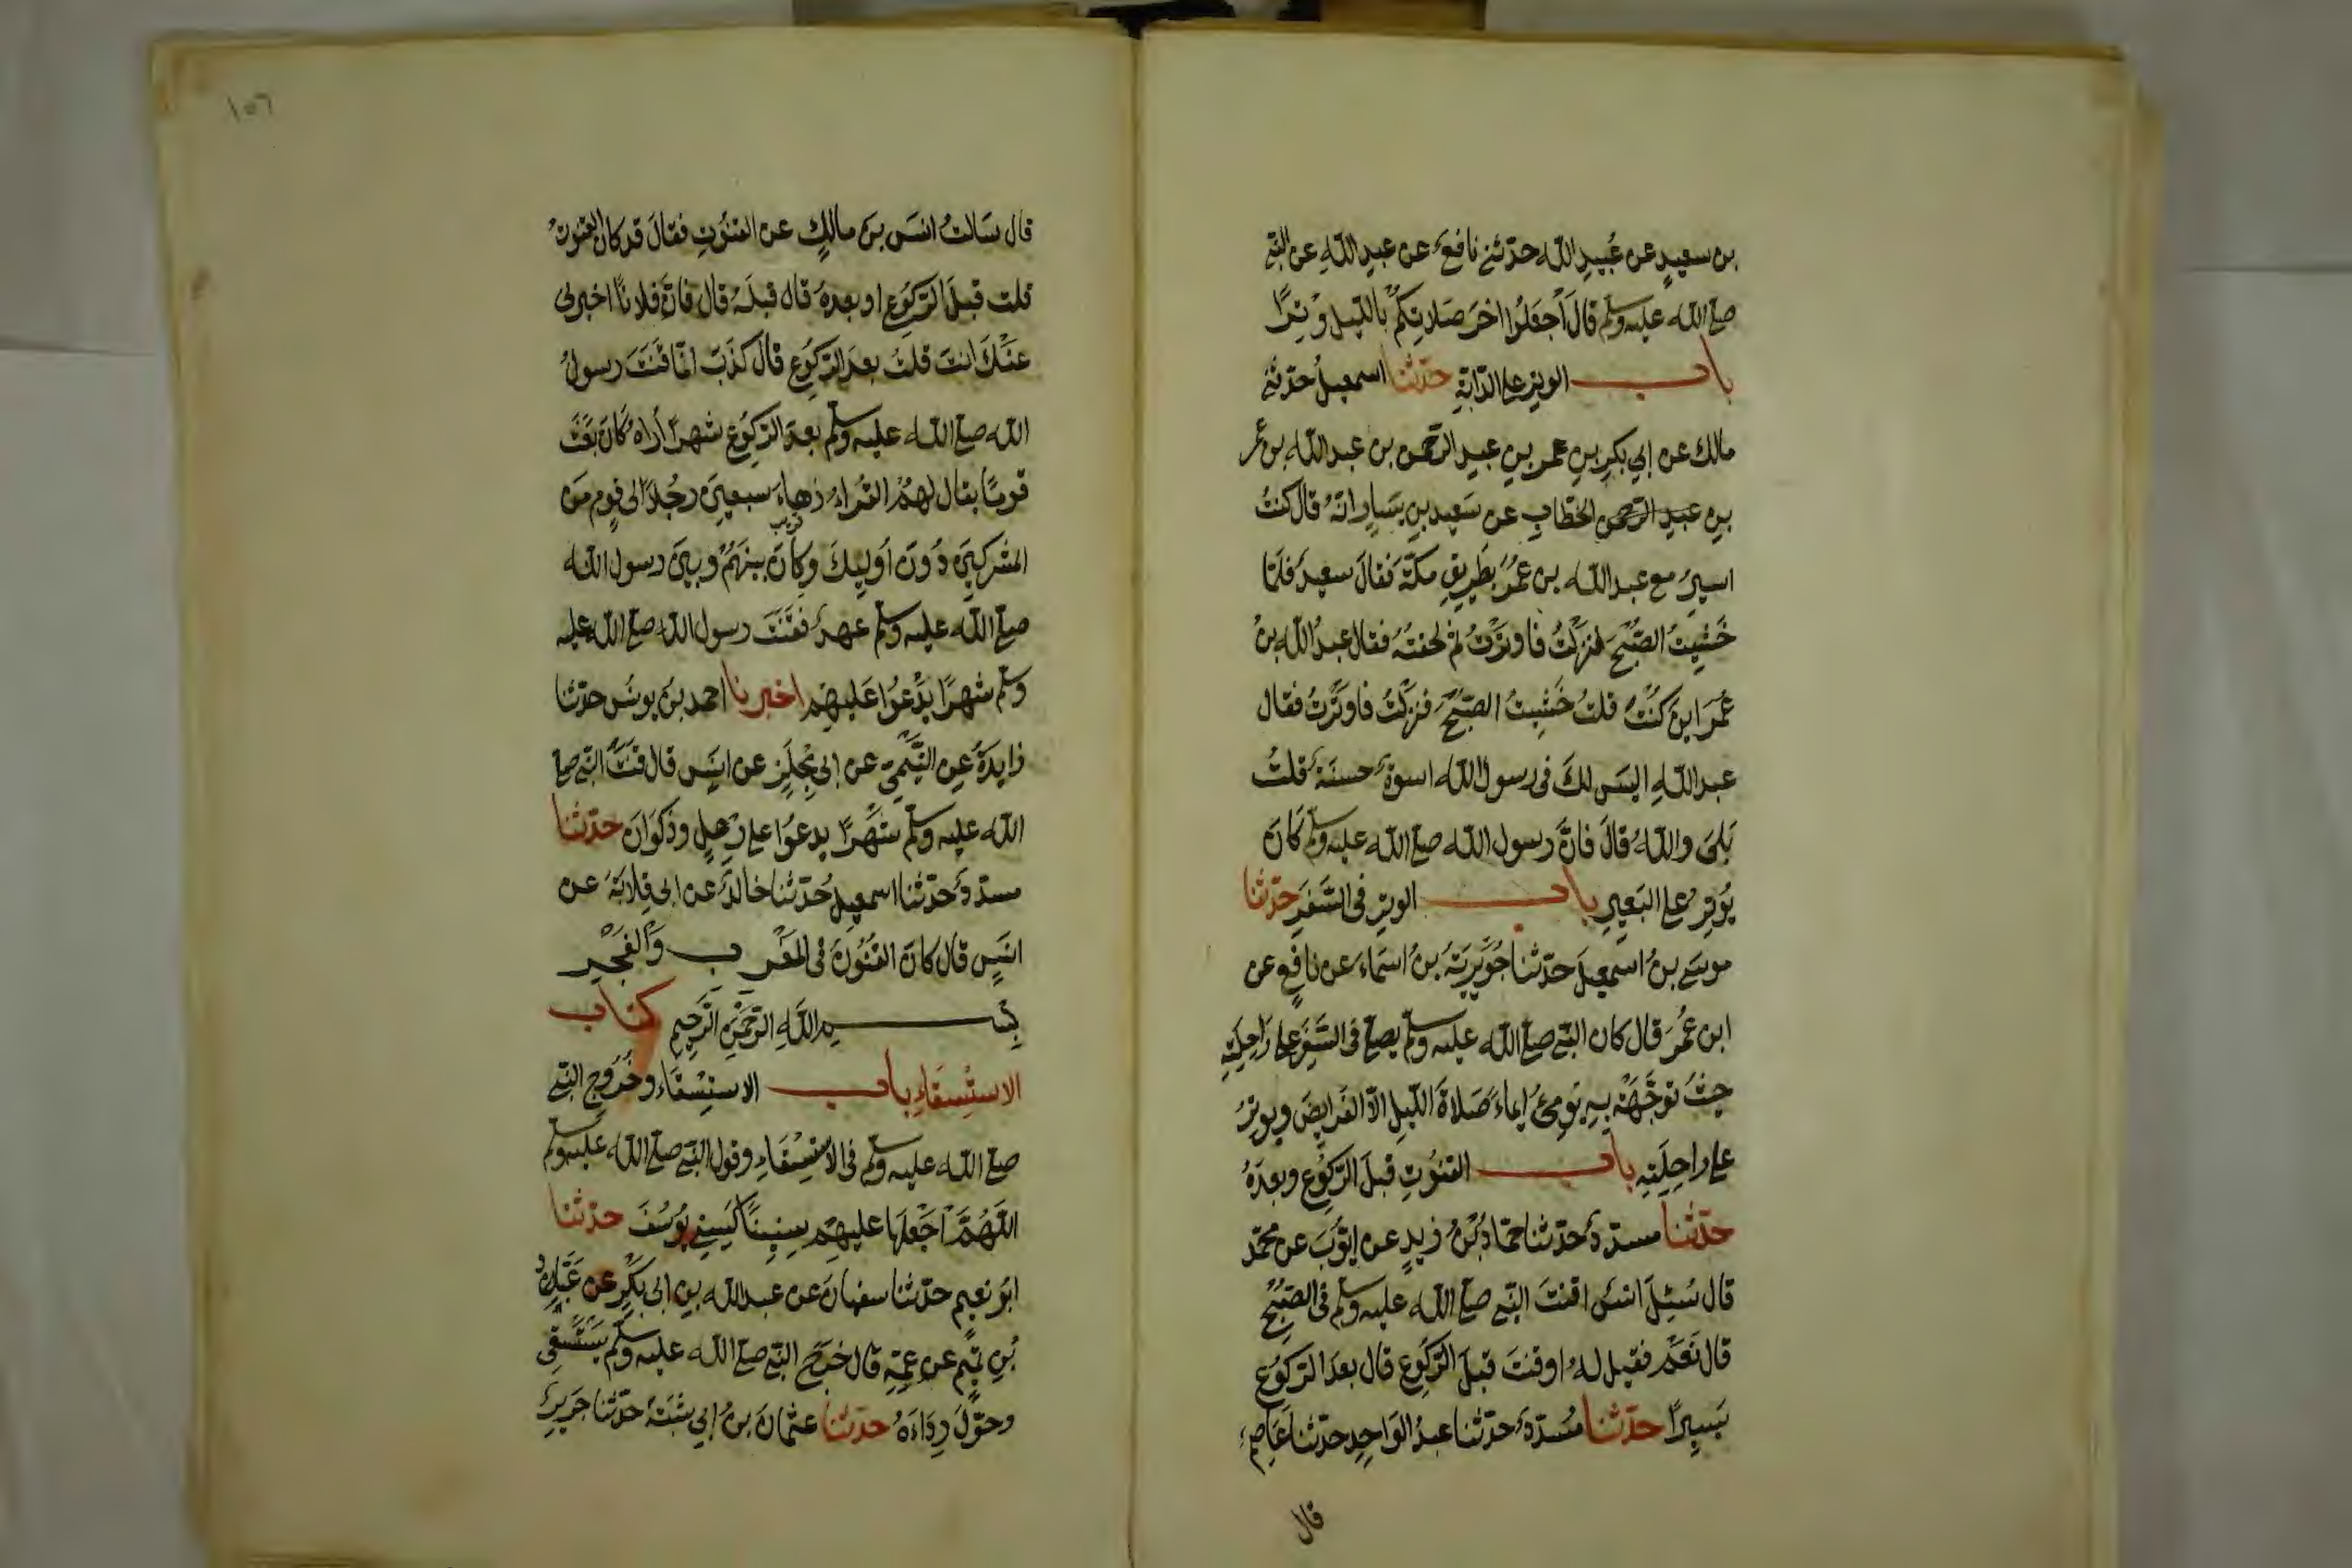 بن سعيدٍ عن عُبيدِ الله حدّثني نافعٌ عن عبدِ اللهِ عن النبي
صلى الله عليه وسلم قالَ اَجْعَلُوا اخرَ صَلاتِكُمْ بالليل وِتْرًا
باب الوِترِ على الدّابّةِ حدّثنا اسمعيلُ حدّثني
مالك عن ابي بكرِ بنِ عمر بنِ عبدِ الرّحمن بن عبد الله بن عمر
بنِ عبدِ الرّحمن الخطّابِ عن سَعيد بنِ يَسَارٍ انّهُ قالَ كنتُ
اسيرُ مع عبد الله بن عُمَرَ بطَرِيقِ مكّةَ فقالَ سعيدٌ فلمّا
خَشِيتُ الصّبْحَ نزلتُ فاوترْتُ ثم لحقتُهُ فقال عبدُ الله بنُ
عُمَرَ اينَ كنْتَ قلتُ خَشِيتُ الصّبْحَ فنزلتُ فاوتَرْتُ فقال
عبد اللهِ اليسَ لكَ فى رسول الله اسوةٌ حسنَةٌ قلتُ
بَلىَ واللهِ قالَ فانَّ رسول الله صلى الله عليه وسلم كانَ
يُوتِرُ على البَعِيرِ باب الوترِ فى السَّفَرِ حدّثنا
موسَى بنُ اسمعيلَ حدّثنا جُوَيْرِيَةُ بنُ اسَماءَ عن نافعٍ عن
ابن عُمَرَ قال كان النبي صلى الله عليه وسلم يصلى فى السَّفَرِ على رَاحِلَتِهِ
حيثُ توجّهَتْ بهِ يُومِئُ ايماءً صَلاةَ الليلِ الاّ الفَرايضَ ويوتِرُ
على راحِلَتِهِ باب القنُوتِ قبلَ الرّكُوعِ وبعدَهُ
حدّثنا مسدّدٌ حدّثنا حمّادُ بْنُ زيدٍ عن ايّوبَ عن محمّد
قال سُئِلَ انسٌ اقنتَ النبي صلى الله عليه وسلم فى الصّبْحِ
قال نَعَمْ فقيل لهُ اوقنتَ قبلَ الرّكُوعِ قال بعدَ الرّكوُعِ
يَسِيرًا حدّثنا مُسَدّدٌ حدّثنا عبدُ الوَاحِدِ حدّثنا عَاصِمٌ
قال
١٥٦
قال سَالتُ انسَ بنَ مالكٍ عن القنُوتِ فقالَ قد كانَ القنوتُ
قلت قبلَ الرّكوُعِ او بعدَهُ قال قبلَهُ قال فانَّ فلانًا اخبرنى
عنْكَ انتَ قلتَ بعدَ الرّكوُعِ قالَ كذَبَ انّما قَنَتَ رسولُ
الله صلى الله عليه وسلم بعدَ الرّكوُعِ شهرًا أراهُ كانَ بَعَثَ
قومًا يقال لهُمُ القُرّاءُ زُهاءَ سبعِينَ رجُلاً الى قومٍ من
المشركِينَ دُونَ اُولَيِكَ وكانَ بينَهُمْ وبينَ رسول الله
صلى الله عليه وسلم عهدٌ فقَنَتَ رسول الله صلى الله عليه
وسلم شهرًا يَدْعُوا عَليهِمْ اخبرنا احمد بنُ يونسَ حدّثنا
زايدَةُ عنِ التَّيْمِيّ عن ابى مِجْلَزٍ عن انسٍ قال قنَتَ النبي صلى
الله عليه وسلم شَهْرًا يدعوُا على رِعْلٍ وذكوَانَ حدّثنا
مسدّدٌ حدّثنا اسمعيلُ حُدّثنا خالدٌ عن ابى قِلابَةَ عن
انسٍ قال كانَ القُنُوتُ فى المَغْرب وَالفَجْر
بسم اللهِ الرّحْمٰنِ الرّحِيمِ كتاب
الاستْسِقاءِ باب الاستِسْقاءِ وخُروُجِ النبي
صلى الله عليه وسلم فى الاستِسْقاءِ وقول النبي صلى الله عليه وسلم
اللهُمَّ اَجْعَلهَا عليهِمْ سِنِينًا كسِنِي يُوسُفَ حدّثنا
ابو نعيم حدّثنا سفيانَ عن عبد الله بنِ ابى بَكْرٍ عن عَبّادِ
بْنِ تميمٍ عن عمّهِ قال خرَجَ النبي صلى الله عليه وسلم يَسْتَسْقِى
وحوّلَ رِدَاءَهُ حدّثنا عثمانَ بنُ ابي شيبَةَ حدّثنا جَرِيرٌ